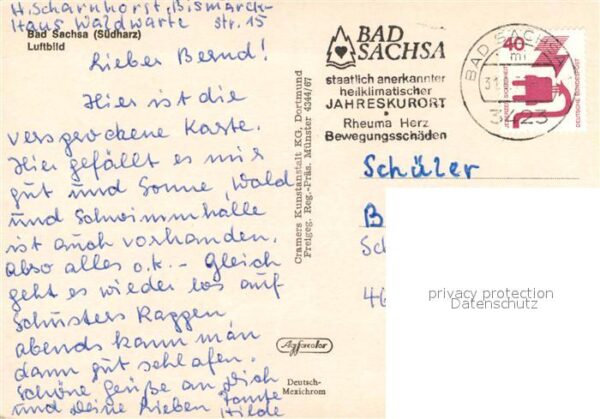 H. Scharnhorst, Bismarck-
Haus Waldwarte str. 15
Bad Sachsa (Südharz)
Luftbild
Lieber Bernd!
Hier ist die
versprochene Karte.
Hier gefällt es mir
gut und Sonne, Wald
und Schwimmhalle
ist auch vorhanden.
Also alles o.k. - Gleich
geht es wieder los auf
Schusters Rappen
abends kann man
dann gut schlafen.
Schöne Grüße an Dich
und Deine Lieben Tante
Hilde
Cramers Kunstanstalt KG, Dortmund
Freigeg. Reg.-Präs. Münster 4344/67
Agfacolor
Deutsch-
Mexichrom
BAD
SACHSA
staatlich anerkannter
heilklimatischer
JAHRESKURORT
Rheuma Herz
Bewegungsschäden
BAD SACHSA
mi
31.
3423
40
DEUTSCHE BUNDESPOST
Schüler
B
Sc
46
privacy protection
Datenschutz